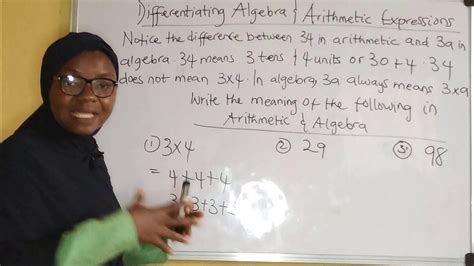 Differentiating Algebra & Arithmetic Expressions
Notice the difference between 34 in arithmetic and 3a in
algebra. 34 means 3 tens & 4 units or 30 + 4. 34
does not mean 3x4. In algebra, 3a always means 3xa
Write the meaning of the following in
Arithmetic & Algebra
① 3x4 ② 29 ③ 98
= 4+4+4
3+3+